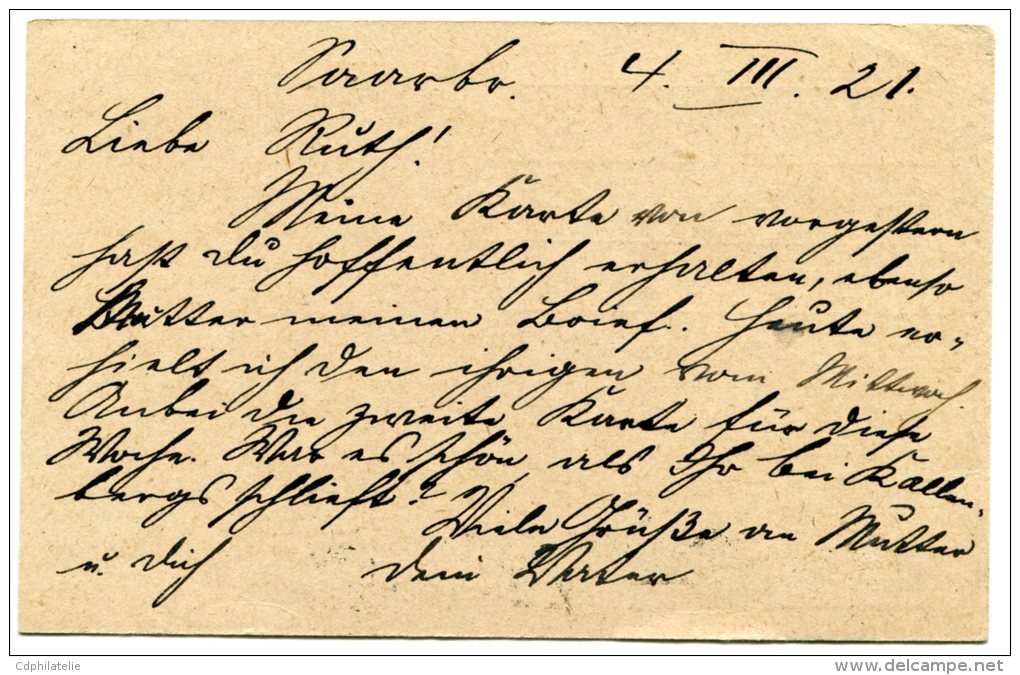 Saarbr. 4. III. 21.
Liebe Ruth!
Meine Karte von vorgestern
hast du hoffentlich erhalten, ebenso
Mutter meinen Brief. Heute er-
hielt ich den ihrigen vom Mittwoch.
Anbei die zweite Karte für diese
Woche. War es schön, als Ihr bei Kallen-
bergs schlieft? Viele Grüße an Mutter
u. dich dein Vater
Cdphilatelie
www.delcampe.net